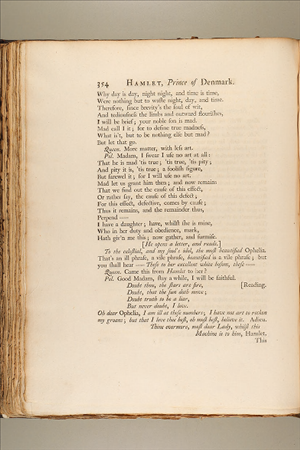 354 HAMLET, Prince of Denmark.
Why day is day, night night, and time is time,
Were nothing but to waste night, day, and time.
Therefore, since brevity's the soul of wit,
And tediousness the limbs and outward flourishes,
I will be brief; your noble son is mad.
Mad call I it; for to define true madness,
What is't, but to be nothing else but mad?
But let that go.
Queen. More matter, with less art.
Pol. Madam, I swear I use no art at all:
That he is mad 'tis true; 'tis true, 'tis pity;
And pity it is, 'tis true; a foolish figure,
But farewel it; for I will use no art.
Mad let us grant him then; and now remains
That we find out the cause of this effect,
Or rather say, the cause of this defect;
For this effect, defective, comes by cause;
Thus it remains, and the remainder thus,
Perpend
I have a daughter; have, whilst she is mine,
Who in her duty and obedience, mark,
Hath giv'n me this; now gather, and surmise.
[He opens a letter, and reads.]
To the celestial, and my soul's idol, the most beautified Ophelia.
That's an ill phrase, a vile phrase, beautified is a vile phrase; but
you shall hear — These to her excellent white bosom, these —
Queen. Came this from Hamlet to her?
Pol. Good Madam, stay a while, I will be faithful.
Doubt thou, the stars are fire, [Reading.
Doubt, that the sun doth move;
Doubt truth to be a liar,
But never doubt, I love.
Oh dear Ophelia, I am ill at these numbers; I have not art to reckon
my groans; but that I love thee best, oh most best, believe it. Adieu.
Thine evermore, most dear Lady, whilst this
Machine is to him, Hamlet.
This